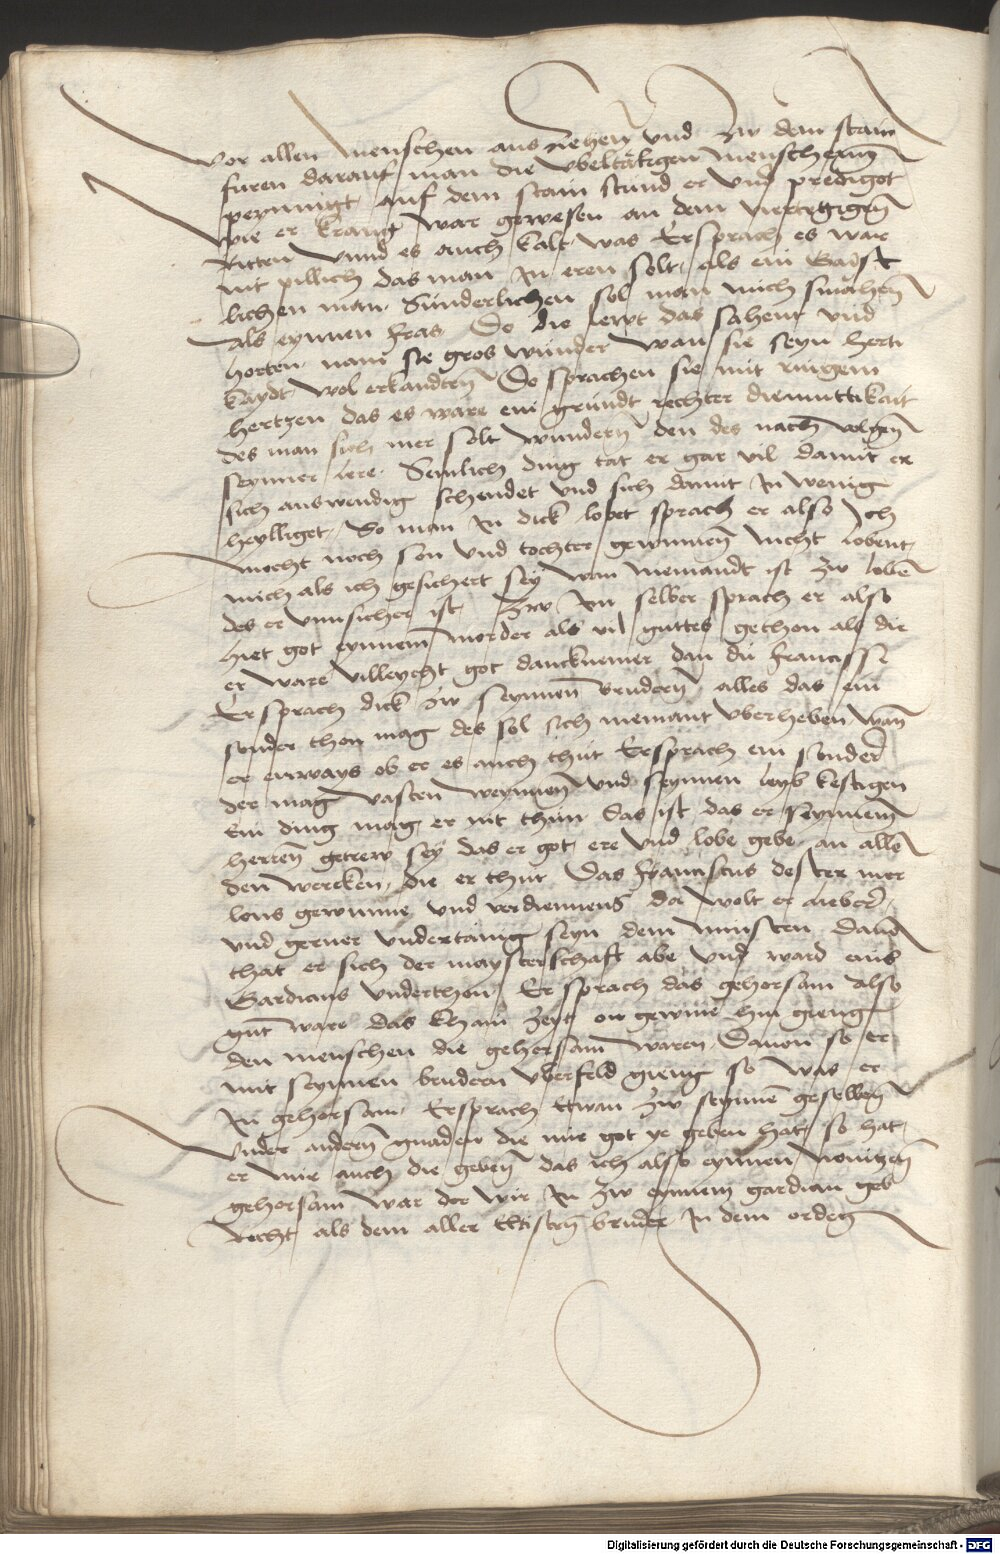 vor allen menschen aus ziehen vnd zw dem stain
furen darauf man die vbeltätigen menschenn
peynnigt auf dem stain stund er vnd predigot
wie er krang war gewesen an dem viertegigen
Ritten vnnd es auch kalt was Er sprach es war
nit pillich das man In eren solt als ein Gaist
lichen man. Sunderlichen sol man mich smahen
als eynnen fras Do die lewt das sahent vnd
horten nam sie gros wunder wan sie seyn herti
kaydt wol erkandten Do sprachen sie mit ringem
hertzen das es ware ein grundt rechter diemuttikait
des man sich mer solt wundern den des nach volgen
seynner lere. Semlich ding tat er gar vil damit er
sich auswendig schendet vnd sich damit In wenig
heylliget, So man In dick lobet sprach er also Ich
mocht noch son vnd tochter gewinnen nicht lobent
mich als ich gesichert sey wan niemandt ist zw loben
des er vnnsicher ist. Zw Im selber sprach er also
hiet got eynnem morder als vil guttes gethon als dir
er ware villeycht got dancknemer dan du francisse
Er sprach dick zw seynnen brudern alles das ein
sunder thon mag des sol sich niemant vberheben wan
er enways ob er es auch thut Er sprach ein sunder
der mag vasten weynnen vnd seynnen leyb kestigen
Ein ding mag er nit thun das ist das er seynnem
herren getrew sey das er got ere vnd lobe gebe an alle
den wercken, die er thut Das franciscus dester mer
lons gewunne vnd verdiennens da wolt er lieber
vnd gerner vndertanig seyn dem minsten dauon
that er sich der maysterschaft abe vnd ward eins
Gardians vnderthon Er sprach das gehorsam also
gut ware das khain zeyt on gewin hin gieng
den menschen die gehorsam waren. Dauon so er
mit seynnen brudern vberfeld gieng so was er
In gehorsam. Er sprach ettwan zw seynnen gesellen
Vnder andern gnaden die mir got ye geben hat so hat
er mir auch die geben das ich also eynnen nouitzen
gehorsam war der wir In zw eynnem gardian geb
recht als dem aller eltisten bruder In dem orden
Digitalisierung gefördert durch die Deutsche Forschungsgemeinschaft - DFG